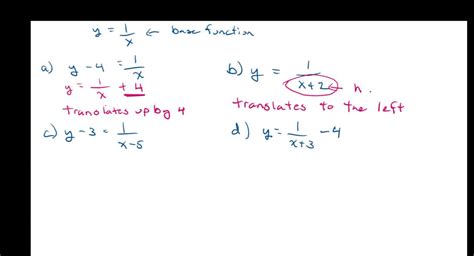 y = 1/x ← base function
a) y - 4 = 1/x
y = 1/x + 4
translates up by 4
b) y = 1/(x+2) ← h.
translates to the left
c) y - 3 = 1/(x-5)
d) y = 1/(x+3) - 4